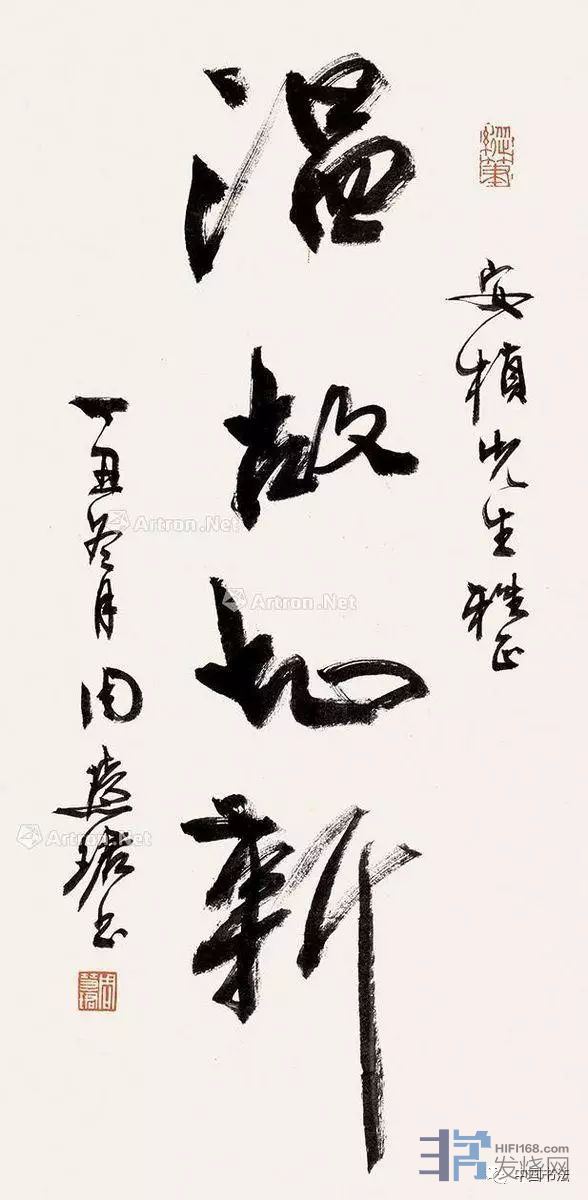 安楨先生雅正
温故知新
丁丑冬月周慧珺书
Artron.Net
Artron.Net
Artron.Net
HIFI168.com
发烧网
中国书法